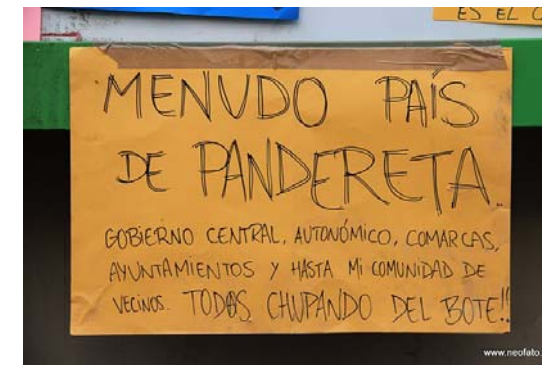 ES EL C
MENUDO PAÍS
DE PANDERETA.
GOBIERNO CENTRAL, AUTONÓMICO, COMARCAS,
AYUNTAMIENTOS Y HASTA MI COMUNIDAD DE
VECINOS. TODOS CHUPANDO DEL BOTE!!
www.neofato.